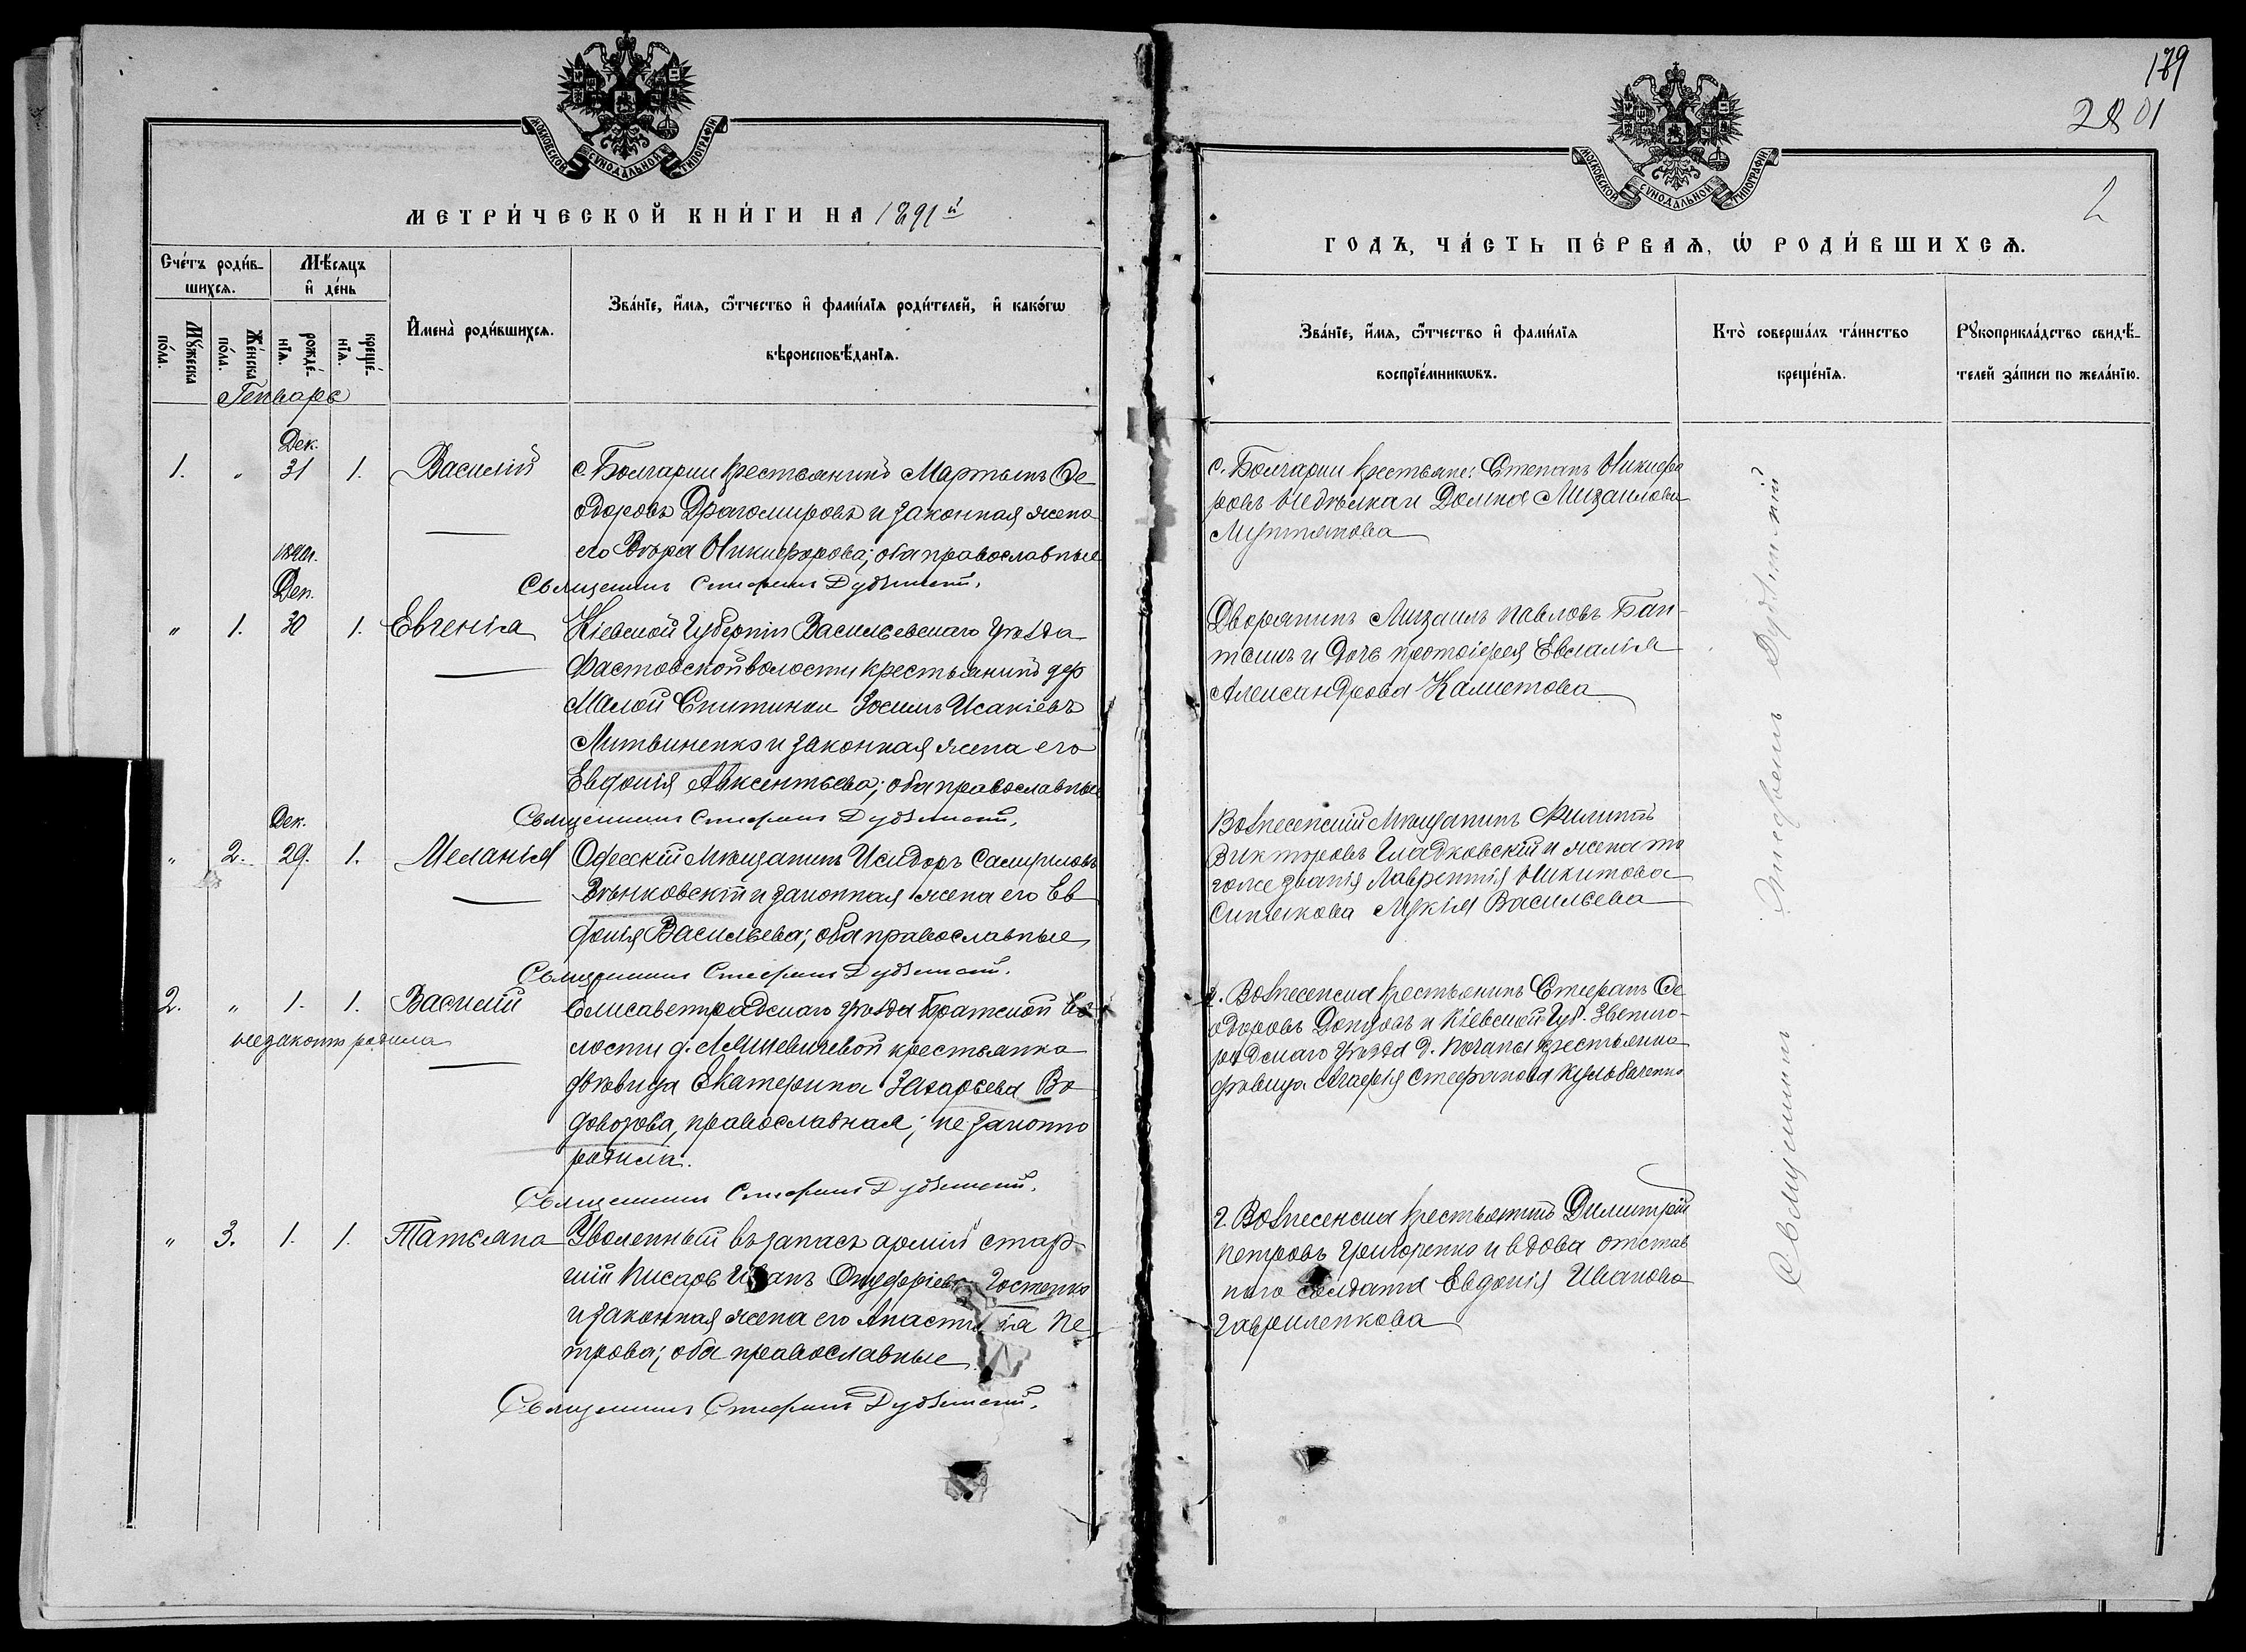 МОСКОВСКОЙ СѴНОДАЛЬНОЙ ТИПОГРАФІИ
МЕТРИ́ЧЕСКОЙ КНИ́ГИ НА 1891й
Сче́тъ роди́в-
шихсѧ.
Мꙋ́жеска
по́ла.
Же́нска
по́ла.
Мѣ́сѧцъ
и҆ де́нь
рожде́-
нїѧ.
креще́-
нїѧ.
И҆мена̀ роди́вшихсѧ.
Зва́нїе, и҆́мѧ, ѻ҆́тчество и҆ фами́лїѧ роди́телей, и҆ како́гѡ
вѣроисповѣ́данїѧ.
Генварь
Дек.
1. " 31 1. Василій
с. Болгарии крестьянинъ Мартынъ Ѳе-
одоровъ Драгомировъ и законная жена
его Вѣра Никифорова; оба православные
1890г.
Священникъ Стефанъ
Дек.
" 1. 30 1. Евгенія
Кіевской Губерніи Васильевскаго Уѣзда
Фастовской волости крестьянинъ дер
Малой Снитинки Зосимъ Исакіевъ
Литвиненко и законная жена его
Евдокія Авксентьева; оба православные
Священникъ Стефанъ
Дек.
" 2. 29. 1. Меланія
Одесскій Мѣщанинъ Исидоръ Самуиловъ
Зѣньковскій и законная жена его Ев
докія Васильева; оба православные
Священникъ Стефанъ
2. " 1. 1. Василій
незаконно родила
Елисаветградскаго уѣзда Братской во-
лости д. крестьянка
дѣвица Екатерина Захарьева Во-
доворова, православная; незаконно
родила.
Священникъ Стефанъ
" 3. 1. 1. Татьяна
Уволенный въ запасъ арміи стар-
шій писарь Иванъ Онуфріевъ Костенко
и законная жена его Анастасія Пе-
трова; оба православные
Священникъ Стефанъ
189
2801
2
МОСКОВСКОЙ СѴНОДАЛЬНОЙ ТИПОГРАФІИ
ГОДЪ, ЧА́СТЬ ПЕ́РВАѦ, Ѡ҆ РОДИ́ВШИХСѦ.
Зва́нїе, и҆́мѧ, ѻ҆́тчество и҆ фами́лїѧ
воспрїе́мникѡвъ.
Кто̀ соверша́лъ та́инство
креще́нїѧ.
Рꙋкоприкла́дство свидѣ́-
телей за́писи по жела́нїю.
с. Болгарии крестьяне: Степанъ Никифо
ровъ Недѣлка и Домна Мизаилова
Дворянинъ Мизаилъ Павловъ Бан-
и Дочь протоіерея Евлалія
Александрова
Вознесенскій Мѣщанинъ Филиппъ
Викторовъ Гладковскій и жена то
гоже званія Лаврентія Никитова
Синякова Лукія Васильева
г. Вознесенска крестьянинъ Стефанъ Ѳе
одоровъ и Кіевской Губ. Звениго-
родскаго Уѣзда д. крестьянка
дѣвица Агафія Стефанова Кульбаченко
г. Вознесенска крестьянинъ Димитрій
Петровъ Григоренко и вдова отстав
наго солдата Евдокія Иванова
Гавриленкова
Священникъ Стефанъ